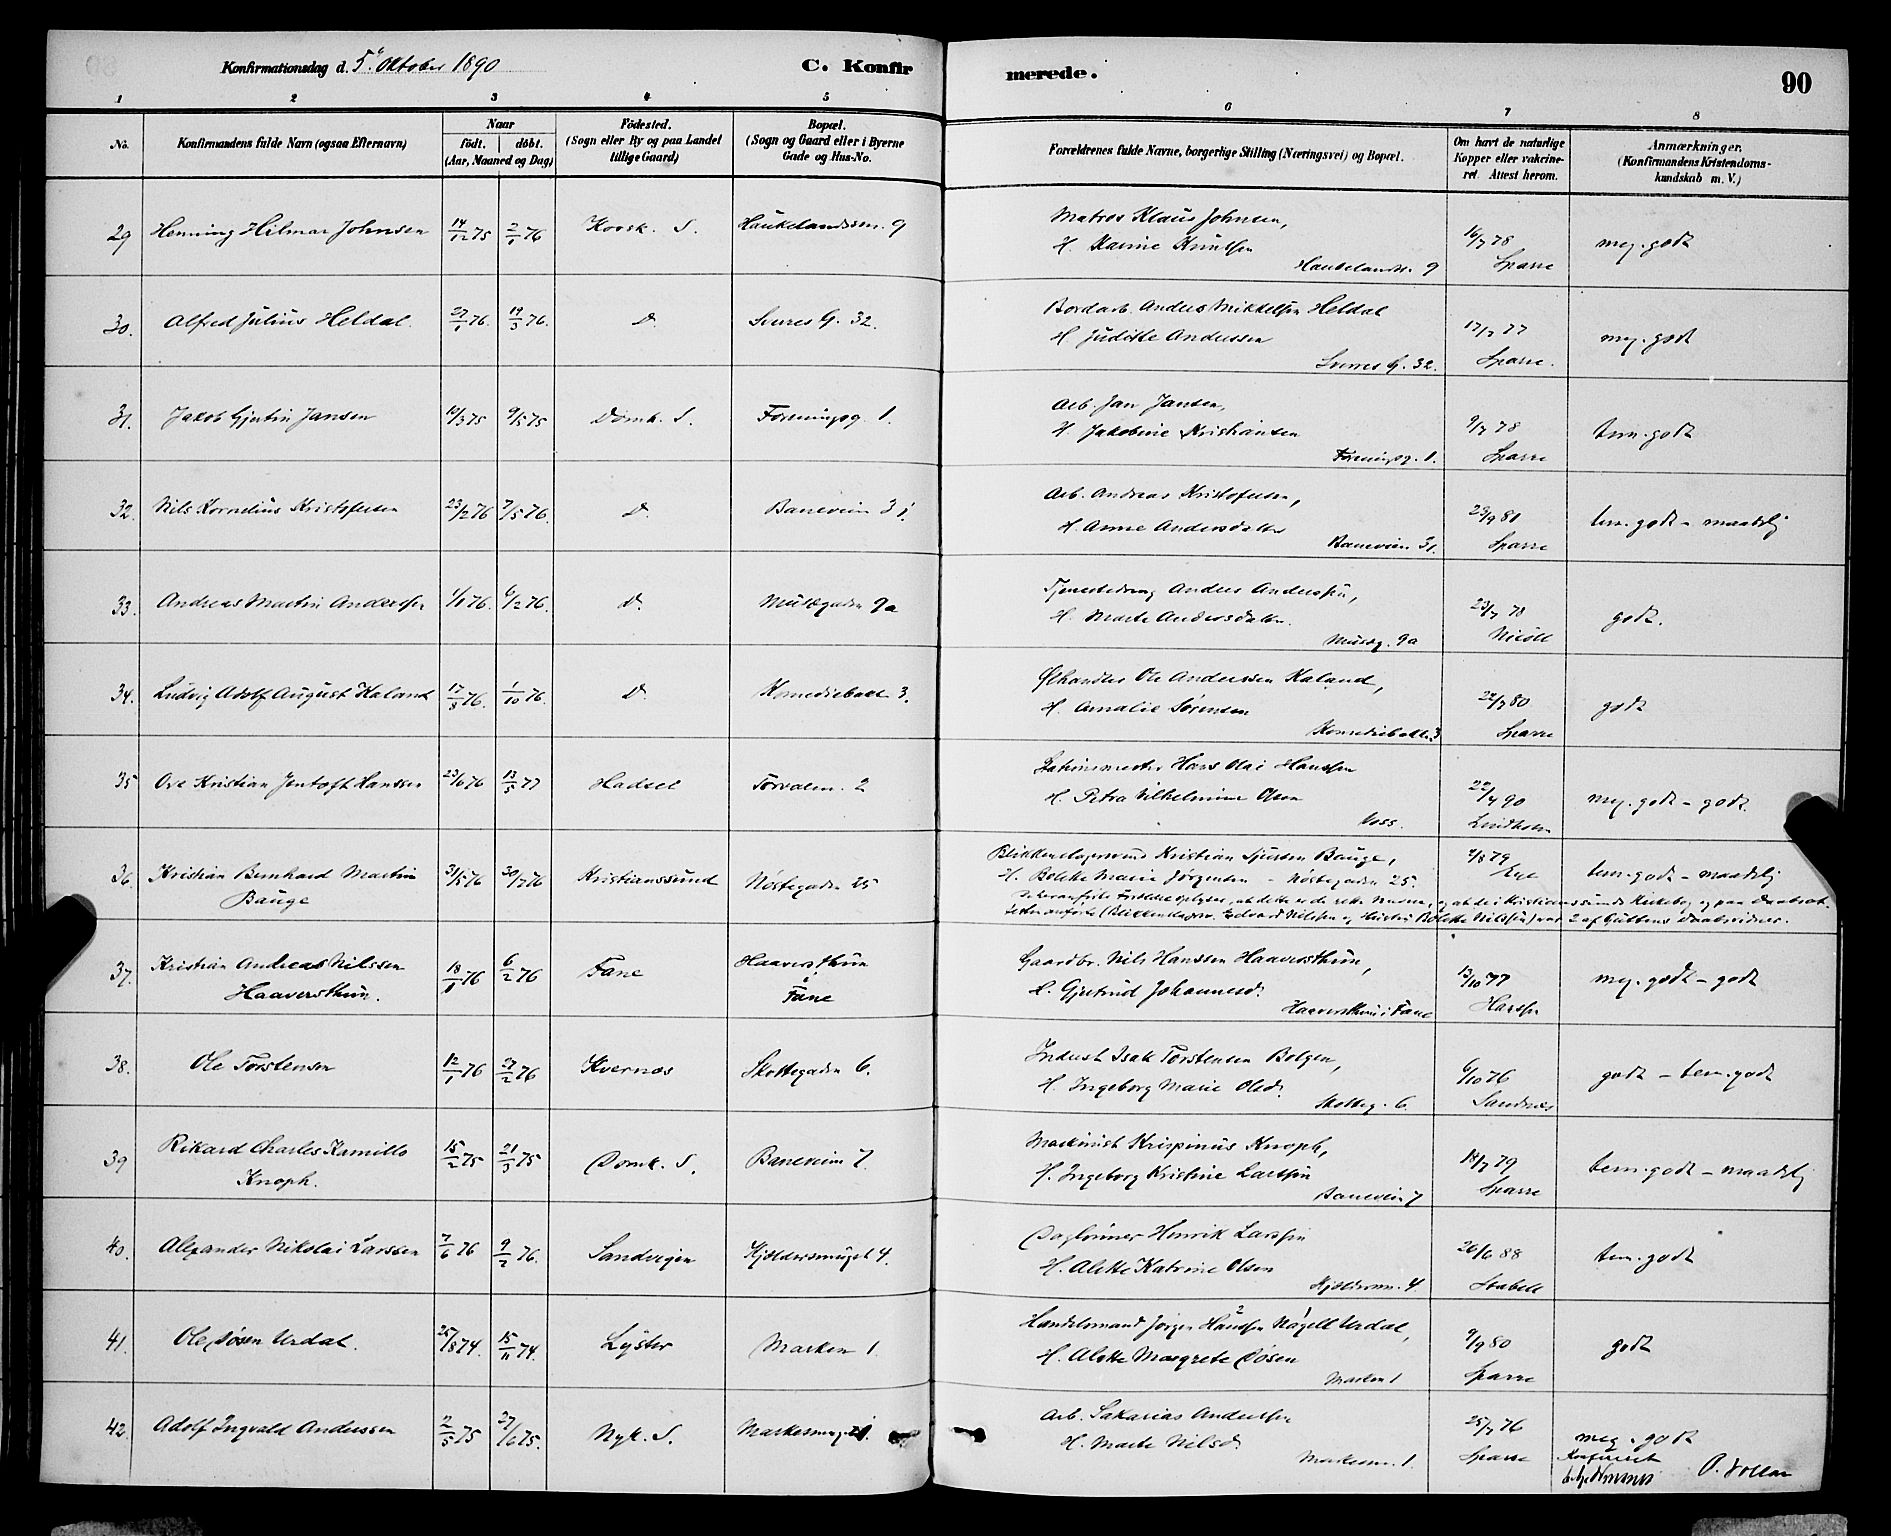 Konfirmationsdag d. 5. Oktober 1890 C. Konfirmerede. 90
1 2 3 4 5 6 7 8
No. Konfirmandens fulde Navn (ogsaa Efternavn) Naar født. døbt. (Aar, Maaned og Dag) Fødested. (Sogn eller By og paa Landet tillige Gaard) Bopæl. (Sogn og Gaard eller i Byerne Gade og Hus-No. Forældrenes fulde Navne, borgerlige Stilling (Næringsvei) og Bopæl. Om havt de naturlige Kopper eller vakcineret. Attest herom. Anmærkninger. (Konfirmandens Kristendomskundskab m. V.)
29 Henning Hilmar Johnsen 14/12 75 2/1 76 Korsk. S. Haukelandsvn. 9 Matros Klaus Johnsen,
H. Karine Knutsen
Haukelandsv. 9 16/7 78 Sparre meg. godt
30. Alfred Julius Heldal. 27/1 76. 19/3 76. D. Sverres G. 32. Bordarb. Anders Mikkelsen Heldal
H. Juditte Anderssen
Sverres G. 32. 17/7 77 Sparre. meg. godt
31. Jakob Gjertin Jansen 19/3 75 9/5 75 Domk. S. Foreningsg. 1. Arb. Jan Jansen,
H. Jakobine Kristiansen
Foreningsg. 1. 9/7 78 Sparre tem. godt
32. Nils Kornelius Kristofersen 23/2 76 7/5 76. D. Baneveien 31. Arb. Andreas Kristofersen,
H. Anne Andersdatter
Baneveien 31. 29/9 81 Sparre tem. godt - maadelig
33. Andreas Martin Anderssen 1/1 76. 6/2 76. D. Musægaden 9a Tjenestedreng Anders Anderssen,
H. Marte Andersdatter.
Musæg. 9a 23/7 78 godt.
34. Ludvig Adolf August Kaland 17/8 76. 1/10 76. D. Komediebakk 3. Ølhandler Ole Anderssen Kaland,
H. Amalie Sørensen
Komediebakk. 3 22/7 80 Sparre godt
35 Ove Kristian Jentoft Hanssen 23/6 76 13/5 77 Hadsel Torvalm. 2 Stationsmester Hans Olai Hanssen
H. Petra Vilhelmine Olsen
Voss. 22/4 90 Lindholm meg. godt - godt.
36. Kristian Bernhard Martin
Bauge 31/5 76 30/7 76 Kristianssund Nøstegaden 25 Blikkenslagersvend Kristian Sjursen Bauge,
H. Bolette Marie Jørgensen - Nøstegaden 25. 7/8 79 tem. godt - maadelig
37. Kristian Andreas Nilssen
Haaversthun. 18/1 76 6/2 76 Fane Haaversthun
i
Fane Gaardbr. Nils Hanssen Haaversthun,
H. Gjertrud Johannesd.
Haaversthun i Fane 13/10 77 Hanssen meg. godt - godt
38. Ole Torstensen 12/1 76 27/2 76 Kvernæs Skottegaden 6. Indust Isak Torstensen Bolgen,
H. Ingeborg Marie Olsd.
Skotteg. 6. 6/10 76 Sandnæs godt - tem. godt
39 Rikard Charles Kamillo
Knoph. 15/2 75 21/3 75 Domk. S. Baneveien 7. Maskinist Krispinus Knoph,
H. Ingeborg Kristine Larssen
Baneveien 7 18/7 79 Sparre tem. godt - maadelig
40. Alexander Nikolai Larssen 7/6 76 9/2 76. Sandvigen Kjeldersmuget 4. Dagløner Henrik Larssen
H. Alette Katrine Olsen
Kjeldersm. 4. 26/6 88 Stabell tem. godt
41. Ole Døsen Urdal. 25/8 74. 15/11 74. Lyster Marken 1. Handelsmand Jørgen Hanssen Nagell Urdal,
H. Alette Margrete Døsen
Marken 1 9/9 80 Sparre godt
42. Adolf Ingvald Anderssen 2/5 75 27/6 75. Nyk. S. Markesmuget 1. Arb. Sakarias Anderssen
H. Marte Nilsd.
Markesm. 1. 25/7 76 Sparre meg. godt
Konfireret